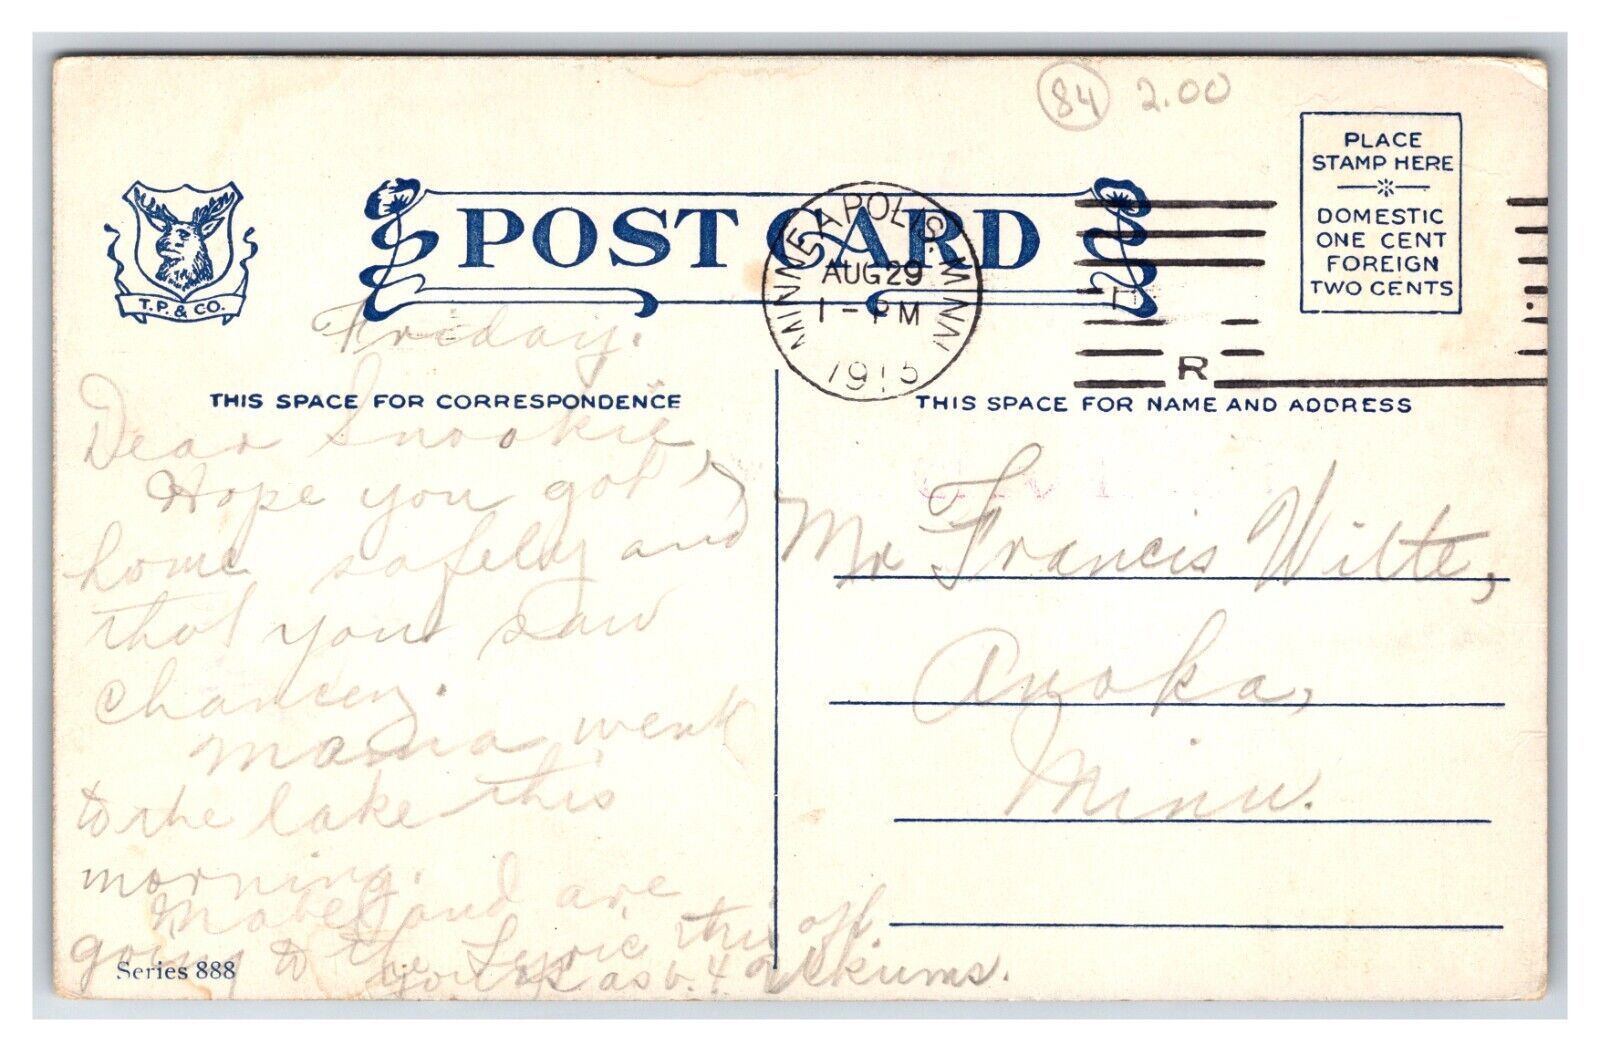 84 2.00
PLACE
STAMP HERE
DOMESTIC
ONE CENT
FOREIGN
TWO CENTS
T.P. & CO.
POST CARD
MINNEAPOLIS. MINN.
AUG 29
1 - PM
1915
R
THIS SPACE FOR CORRESPONDENCE
Friday.
Dear Snookie,
Hope you got
home safely and
that you saw
Chancey.
Mama went
to the lake this
morning.
Mabel and I are
going to the Lyric this aft.
yours as
THIS SPACE FOR NAME AND ADDRESS
Mr Francis Witte,
Anoka,
Minn.
Series 888